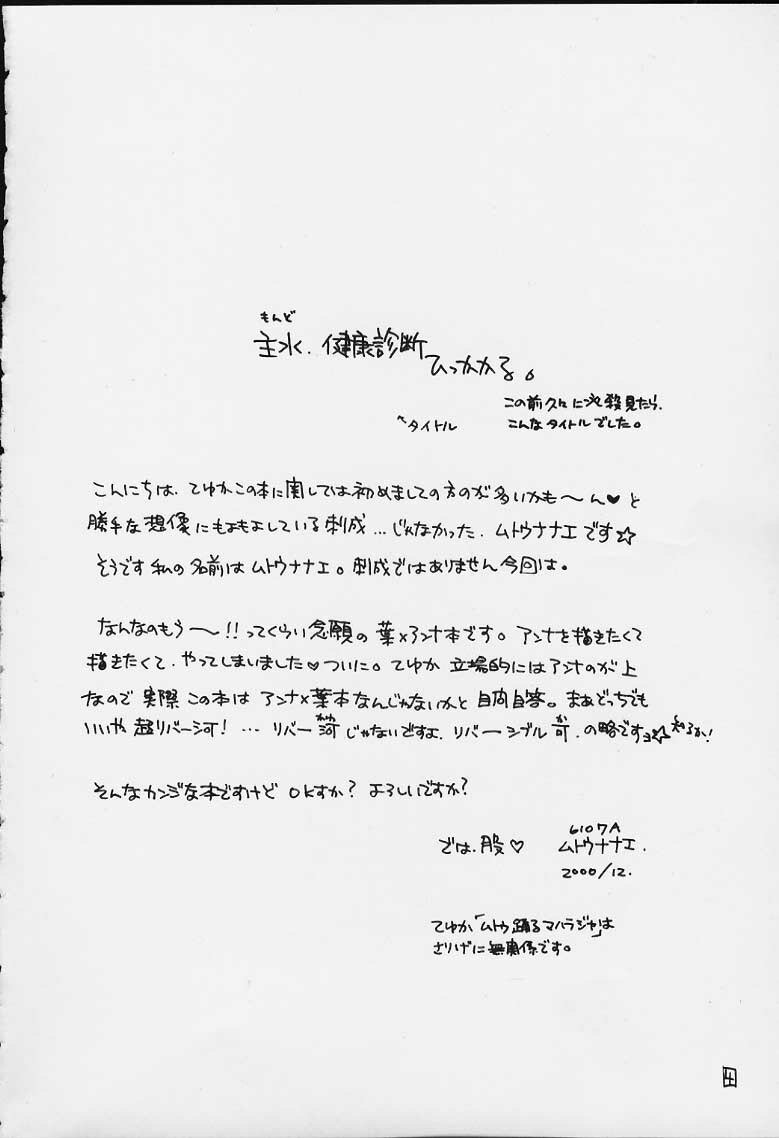 もんど
主水、健康診断
ひっかかる。
↖タイトル
この前久々に必殺見たら、
こんなタイトルでした。
こんにちは、てゆかこの本に関しては初めましての方のが多いかも〜ん♥と
勝手な想像にもよもよしている刺成…じゃなかった、ムトウナナエです☆
そうです私の名前はムトウナナエ。刺成ではありません今回は。
なんなのもう〜!!ってくらい念願の葉×アンナ本です。アンナを描きたくて
描きたくて、やってしまいました♥ついに。てゆか立場的にはアンナのが上
なので実際この本はアンナ×葉本なんじゃないかと自問自答。まあどっちでも
いいや超リバー河!…リバー河じゃないですよ、リバーシブル可、の略ですョ☆知るか!
そんなカンジな本ですけどOKすか?よろしいですか?
では、股♡
6107A
ムトウナナエ.
2000/12.
てゆか「ムトウ踊るマハラジャ」は
さりげに無関係です。
4